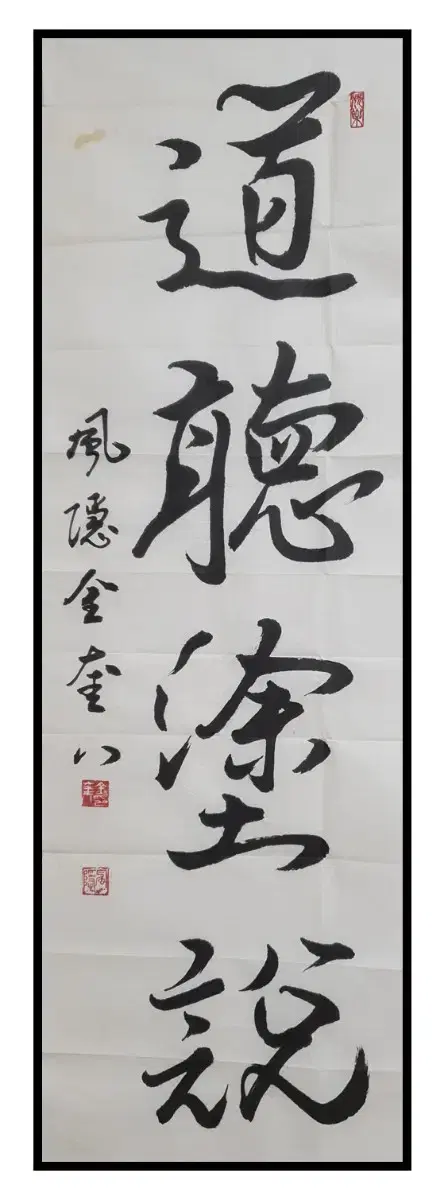 道聽塗說
風隱金奎八